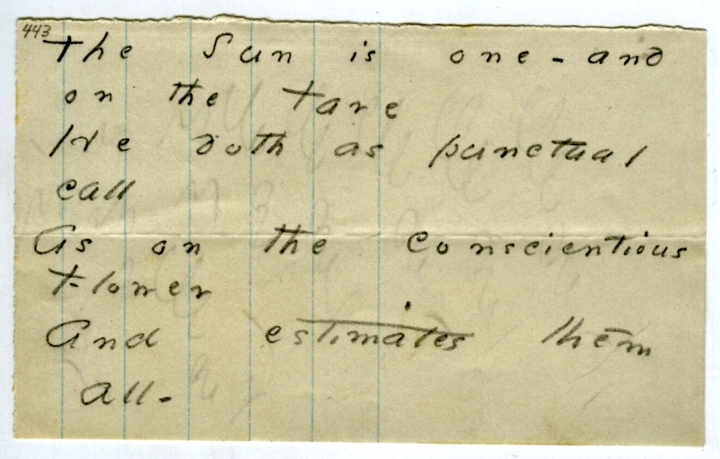 443
The Sun is one - and
on the Tare
He doth as punctual
call
As on the conscientious
Flower
And estimates them
all -